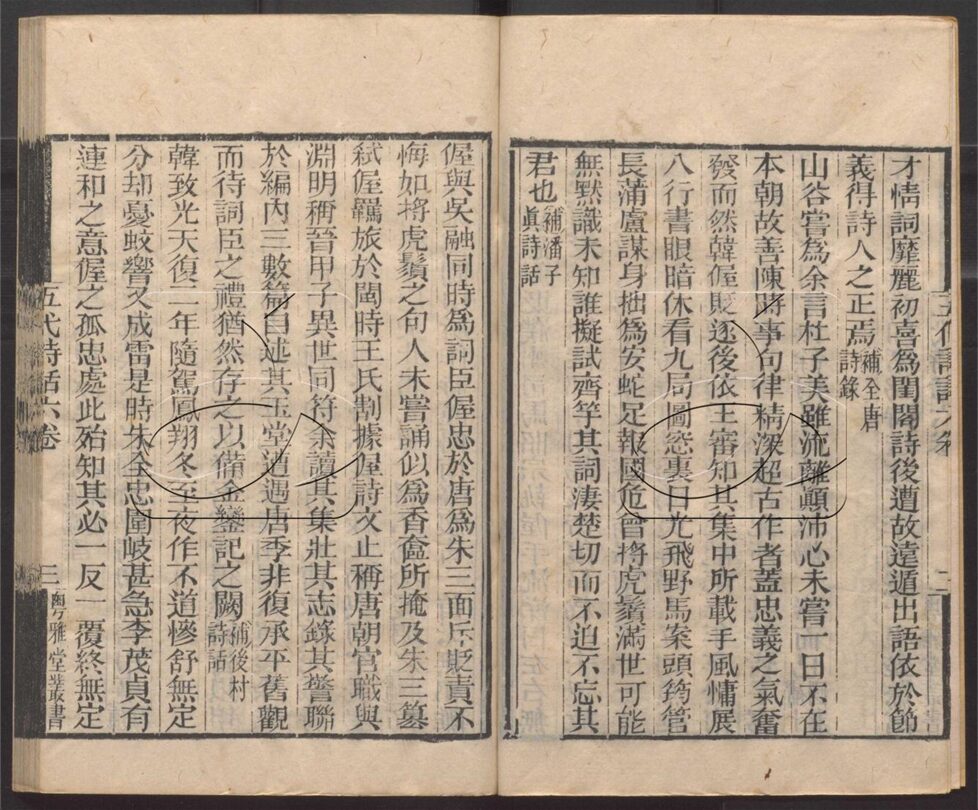 才情詞靡麗初喜爲閨閣詩後遭故遠遁出語依於節
義得詩人之正焉補全唐詩錄
山谷嘗爲余言杜子美雖流離顚沛心未嘗一日不在
本朝故善陳時事句律精深超古作者蓋忠義之氣奮
發而然韓偓貶逐後依王審知其集中所載手風慵展
八行書眼暗休看九局圖窓裏日光飛野馬案頭筠管
長蒲盧謀身拙爲安蛇足報國危曾捋虎鬚滿世可能
無黙識未知誰擬試齊竽其詞淒楚切而不迫不忘其
君也補潘子眞詩話
偓與吳融同時爲詞臣偓忠於唐爲朱三面斥貶責不
悔如捋虎鬚之句人未嘗誦似爲香奩所掩及朱三篡
弑偓羈旅於閩時王氏割據偓詩文止稱唐朝官職與
淵明稱晉甲子異世同符余讀其集壯其志錄其警聯
於編內三數篇自述其玉堂遭遇唐季非復承平舊觀
而待詞臣之禮猶然存之以備金鑾記之闕補後村詩話
韓致光天復二年隨駕鳳翔冬至夜作不道慘舒無定
分却憂蚊響又成雷是時朱全忠圍岐甚急李茂貞有
連和之意偓之孤忠處此殆知其必一反一覆終無定
五代詩話六卷
三
粵雅堂叢書